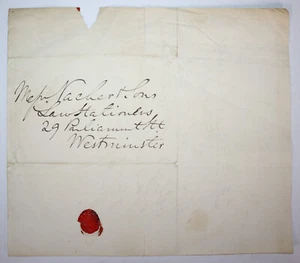 Messrs Nacher & Sons
Law Stationers
29 Parliament St
Westminster